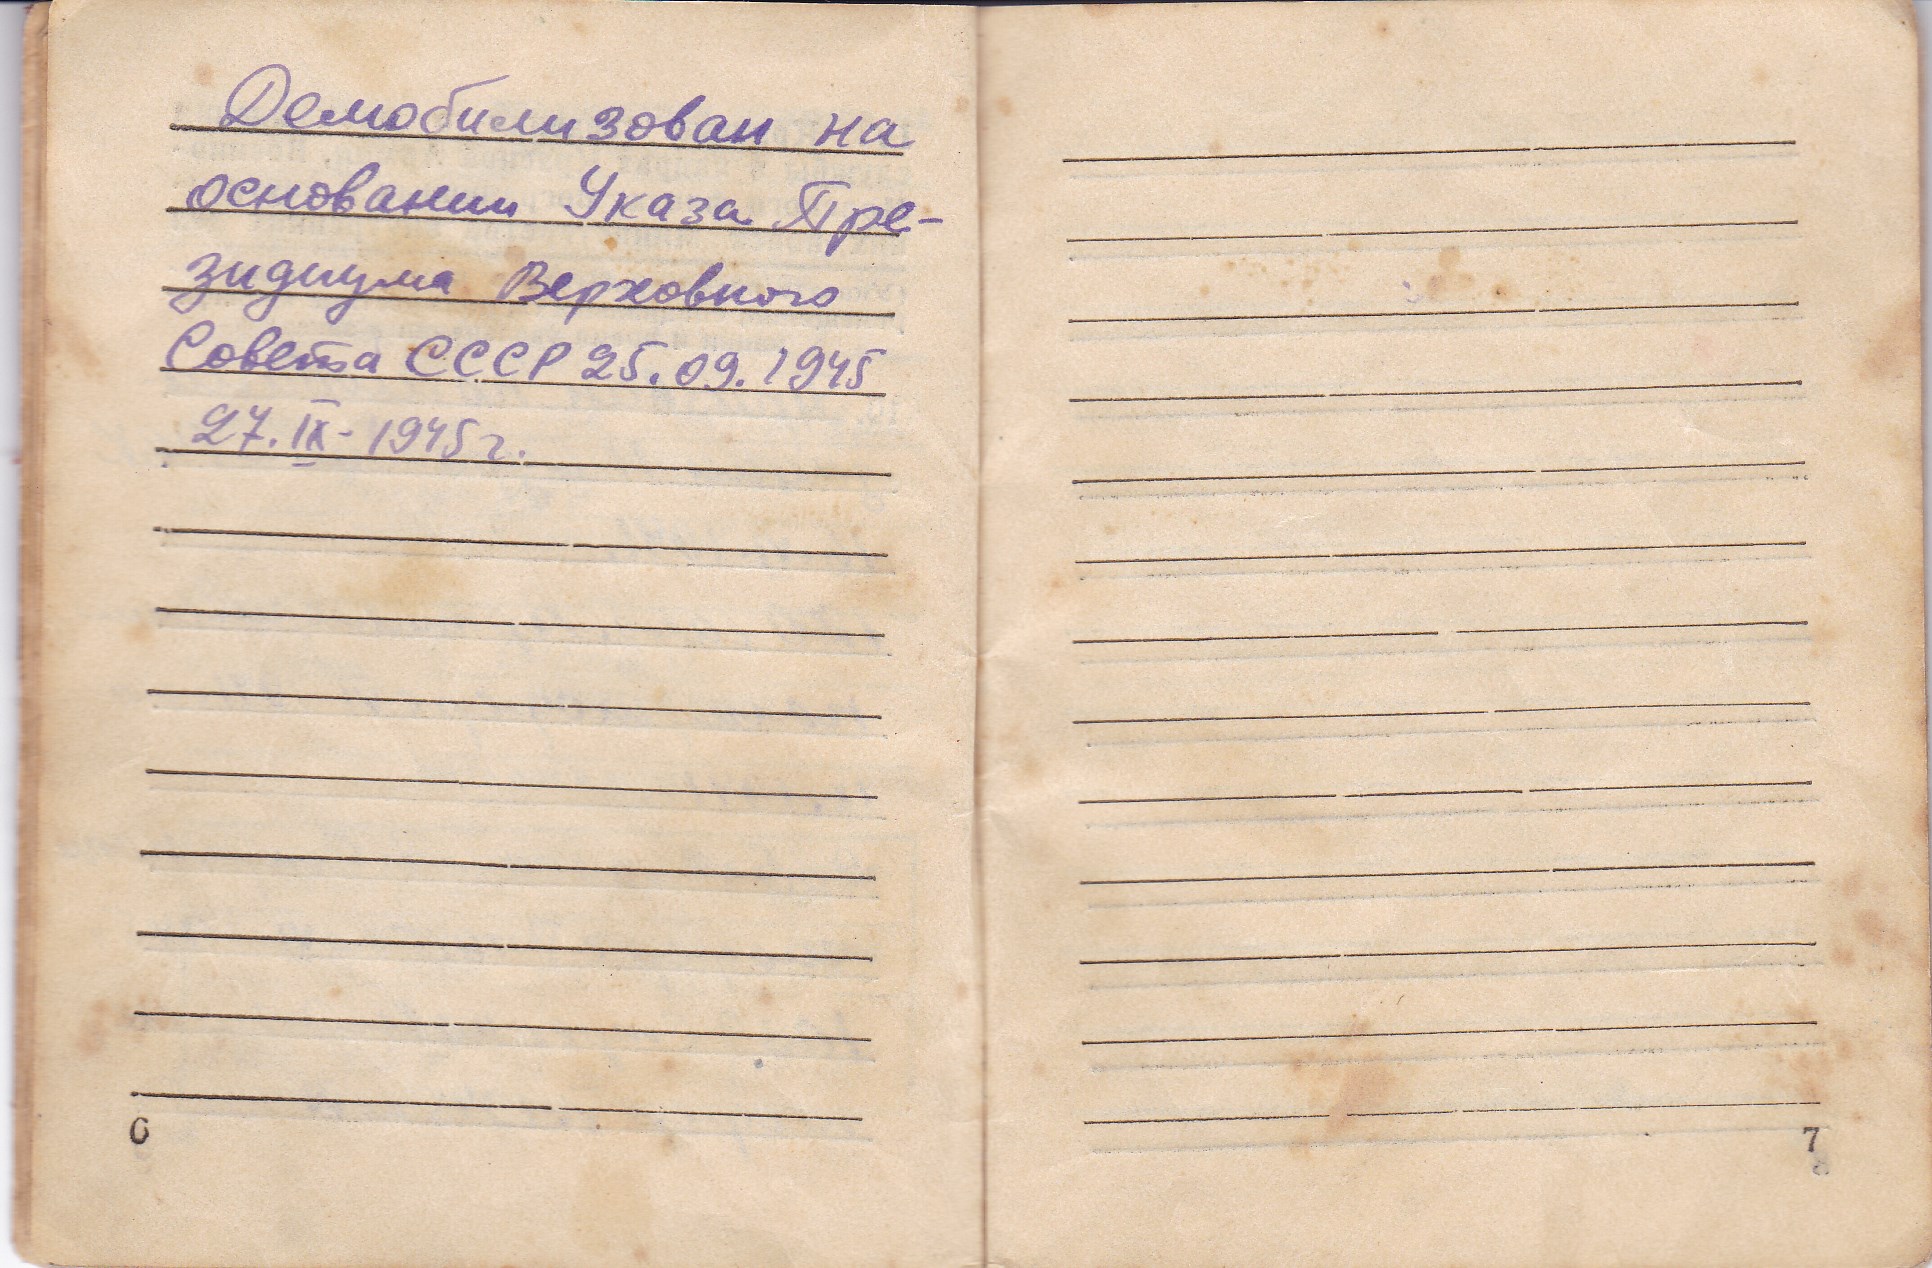 Демобилизован на
основании Указа Пре-
зидиума Верховного
Совета СССР 25.09.1945
27.IX-1945г.
6
7